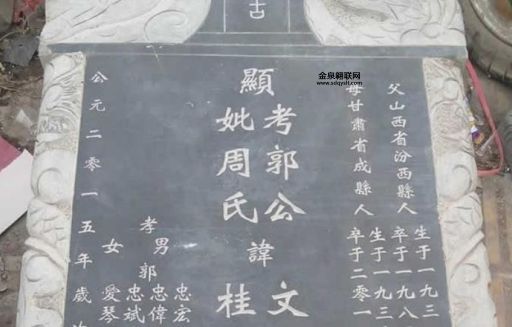 古
金泉翱联网
www.sdqyslt.com
父山西省汾西縣人
生于一九三
卒于一九八
母甘肅省成縣人
生于一九三
卒于二零一
顯
考郭公諱文
妣周氏桂
孝男郭
忠宏
忠偉
忠斌
女愛琴
公元二零一五年歲